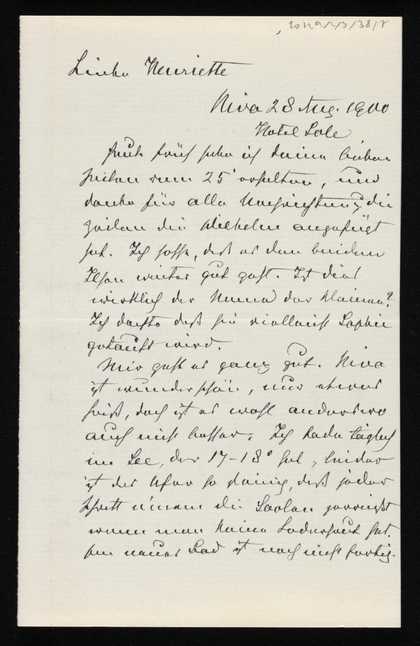 Liebe Henriette
Riva 28 Aug. 1900
Hotel Lido
Heut früh habe ich deine lieben
Zeilen vom 25' erhalten, und
danke für alle Nachrichten, die
Zeilen die Wilhelm angefügt
hat. Ich hoffe, daß es den beiden
weiter gut geht. Ist dies
wirklich der Name der kleinen?
Ich dachte daß sie vielleicht Sophie
getauft wird.
Mir geht es ganz gut. Riva
ist wunderschön, nur etwas
heiß, doch ist es wohl anderswo
auch nicht besser. Ich bade täglich
im See, der 17-18° hat, leider
ist das Ufer so steinig, daß jeder
Schritt einem die Sohlen zerreißt
wenn man keine Lederhaut hat.
neues Bad ist noch nicht fertig.